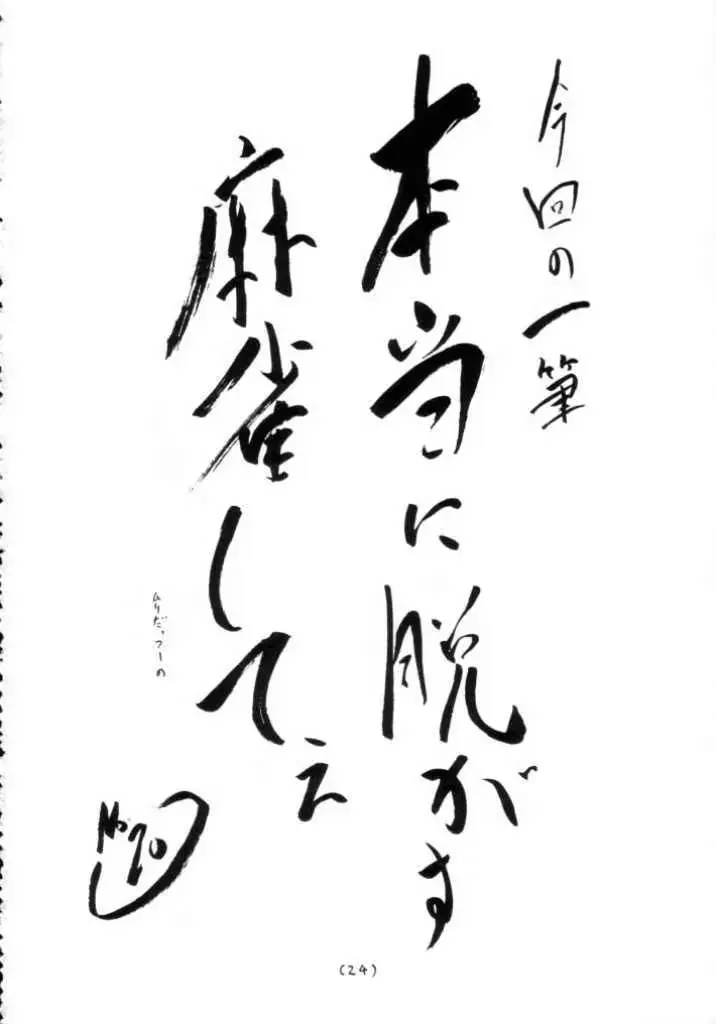 今回の一筆
本当に脱がす
麻雀してぇ
ムリだっつーの
No.20
(24)